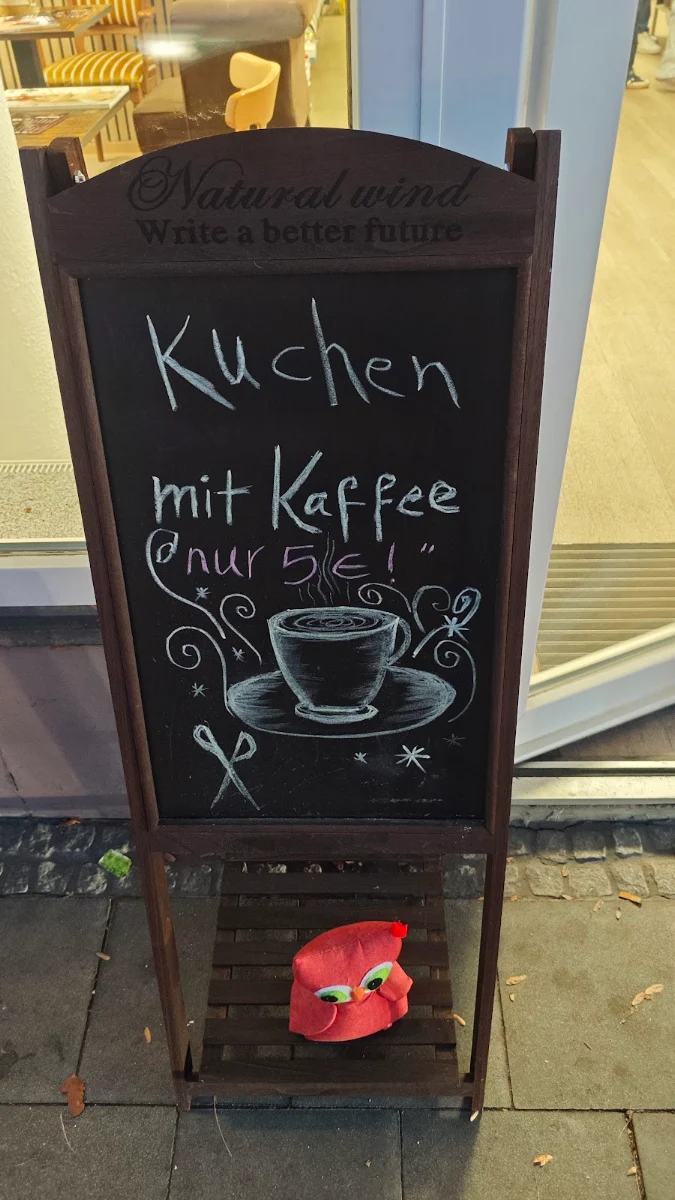 Natural wind
Write a better future
Kuchen
mit Kaffee
nur 5€!"